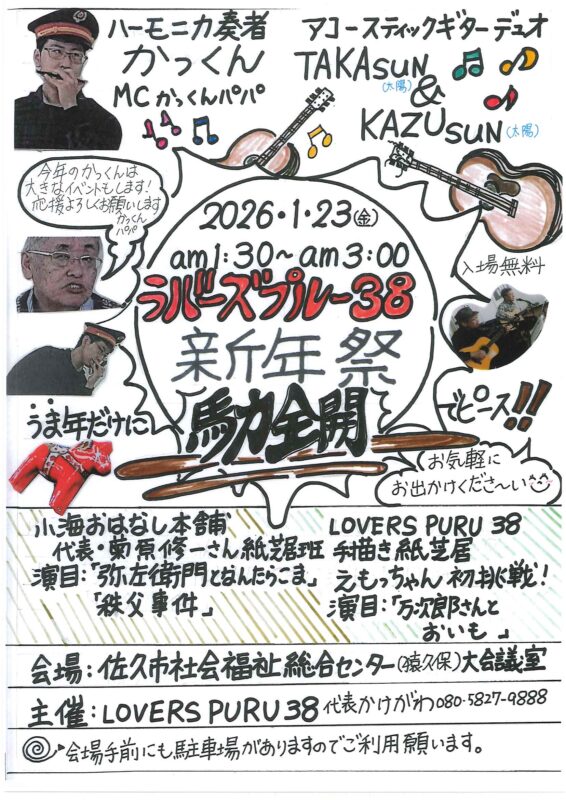 ハーモニカ奏者
かっくん
MC かっくんパパ
アコースティックギターデュオ
TAKAsUN
(太陽)
&
KAZUsUN (太陽)
今年のかっくんは
大きなイベントもします!
応援よろしくお願いします
かっくん
パパ
2026・1・23(金)
am1:30~am3:00
ラバーズプルー38
新年祭
馬力全開
入場無料
うま年だけに
でピース!!
お気軽に
お出かけくださ~い
小海おはなし本舗
代表・菊原修一さん紙芝居班
演目:「弥左衛門となんたらこま」
「秩父事件」
LOVERS PURU 38
手描き紙芝居
えもっちゃん初挑戦!
演目:「万次郎さんと
おいも」
会場:佐久市社会福祉総合センター(猿久保)大会議室
主催:LOVERS PURU 38 代表かけがわ 080-5827-9888
会場手前にも駐車場がありますのでご利用願います。